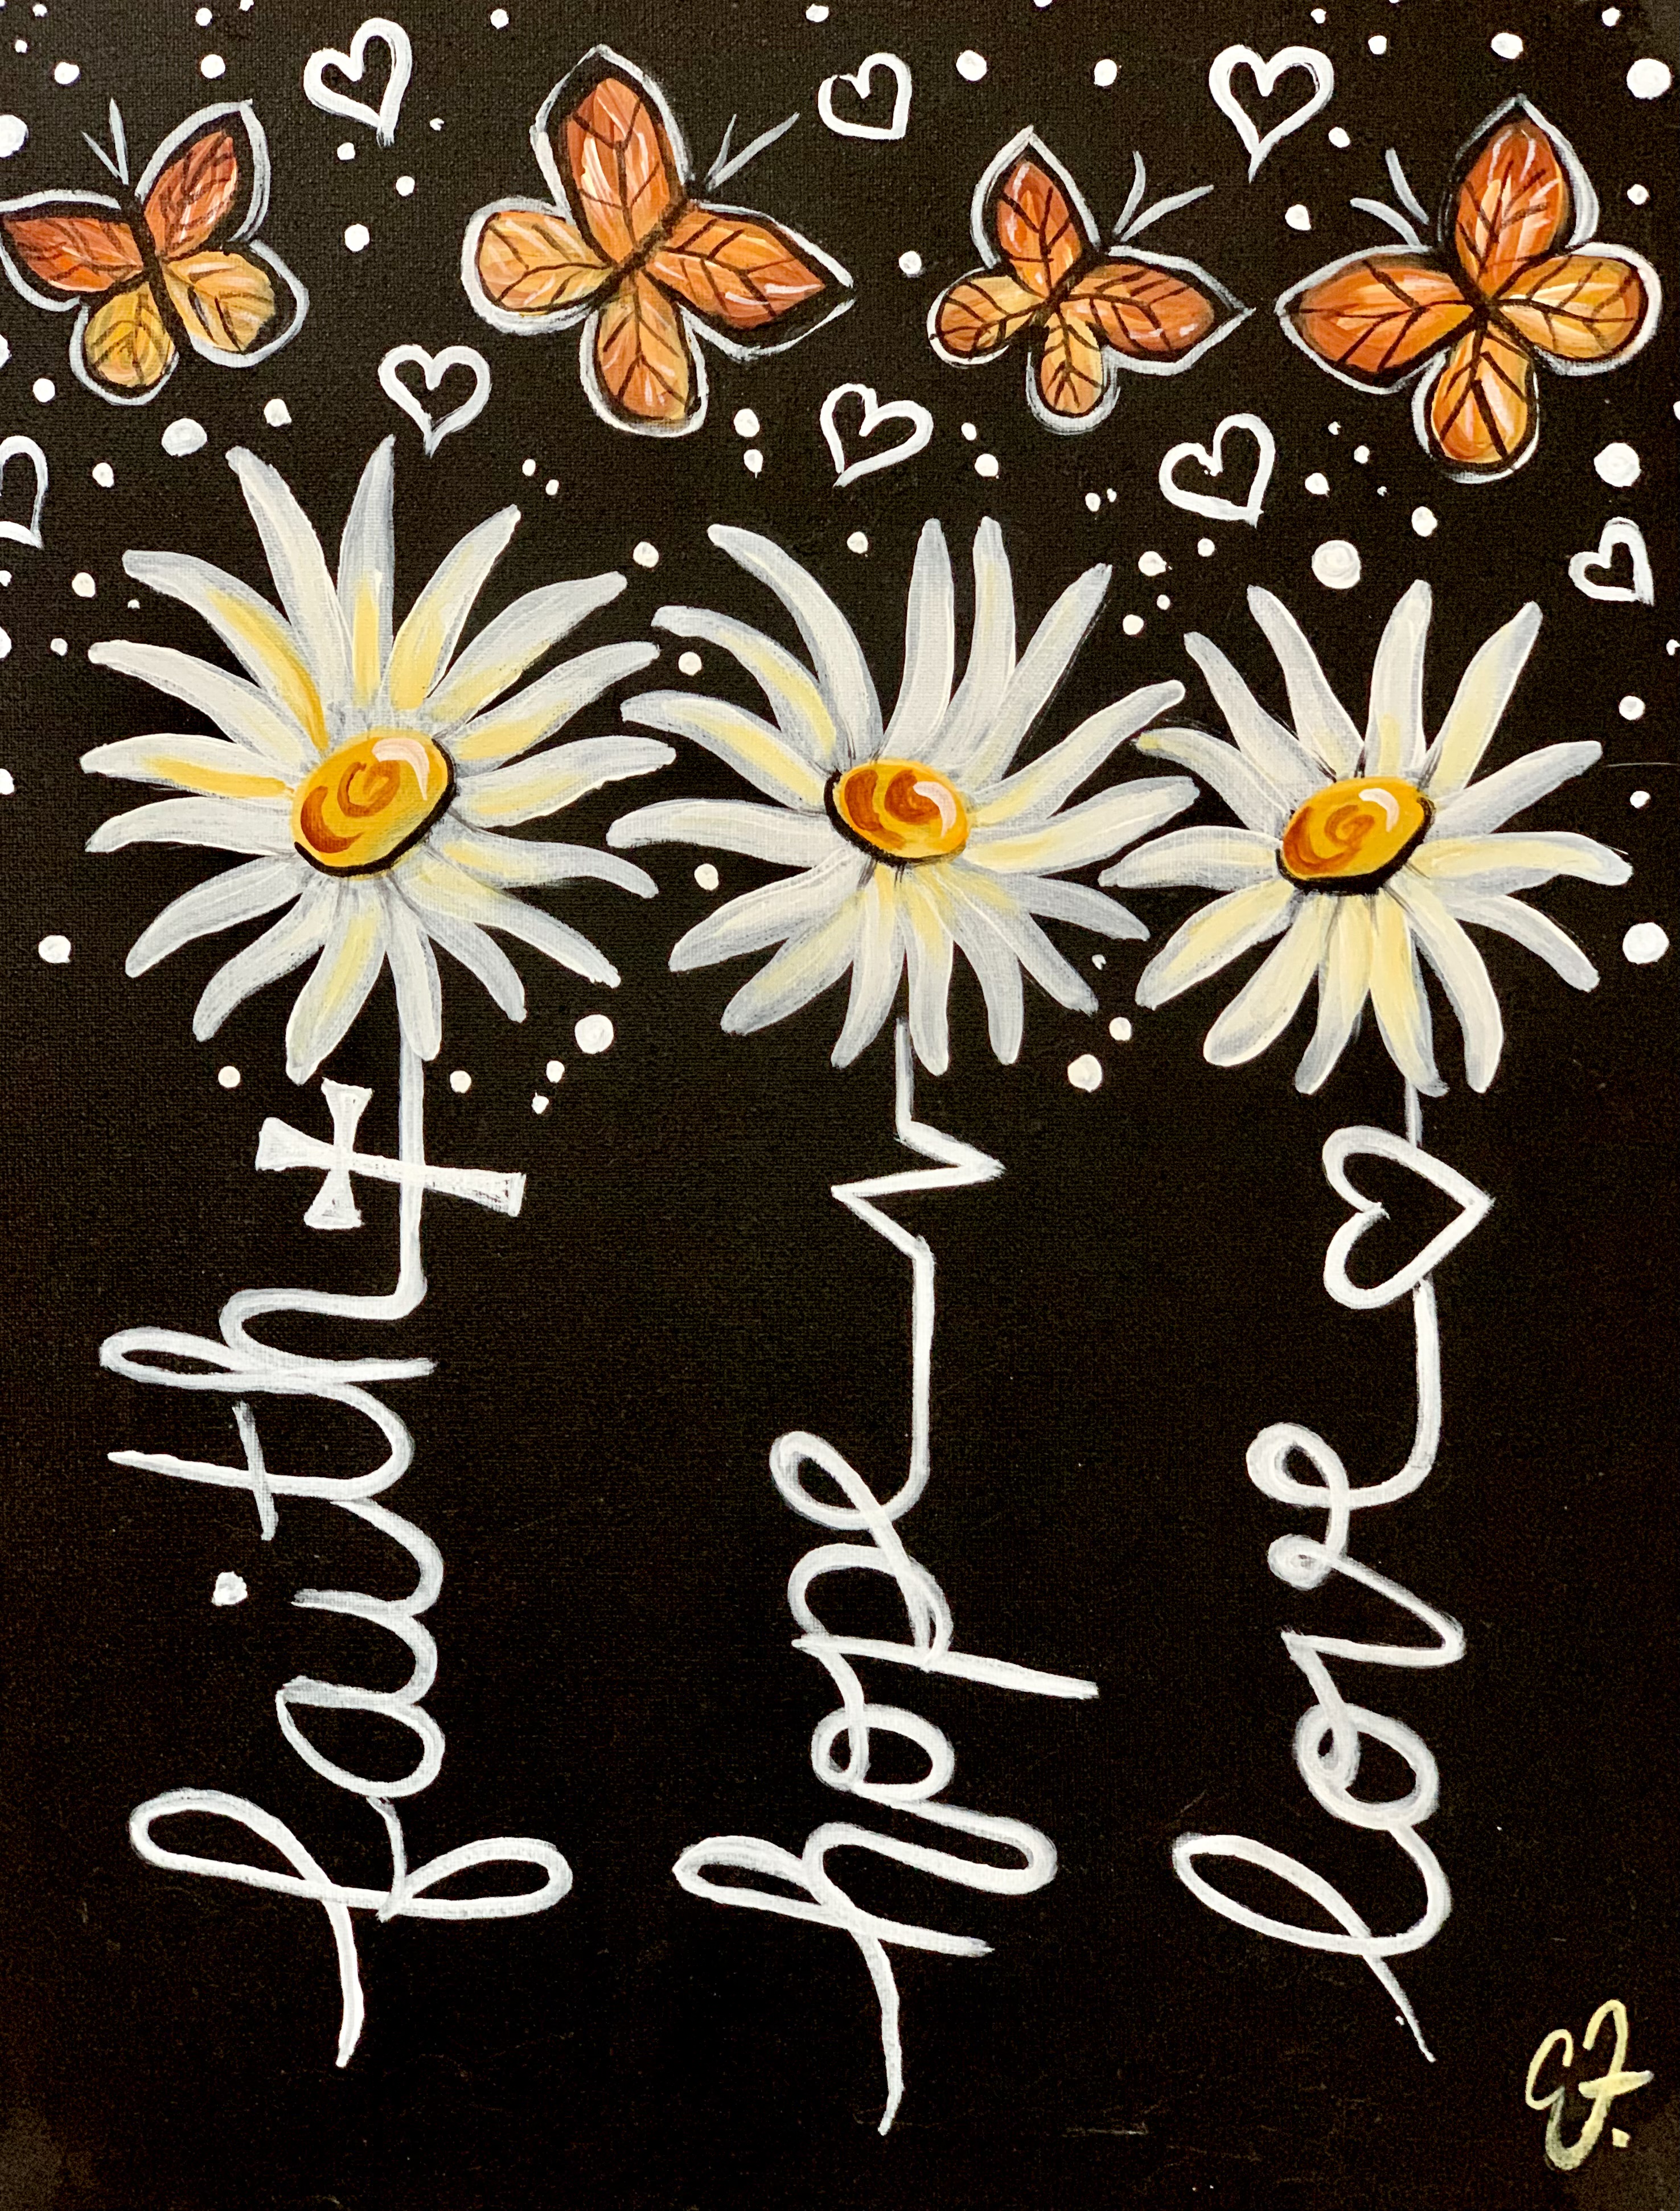 faith
hope
love
EF.